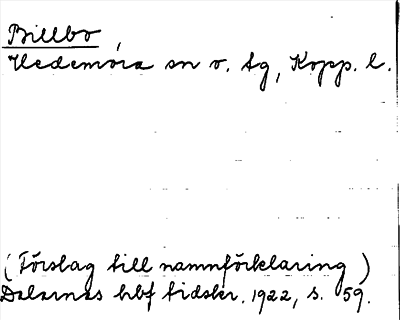 Billbo
Hedemora sn o. tg, Kopp. l.
(Förslag till namnförklaring)
Dalarnas hbf tidskr. 1922, s. 59.